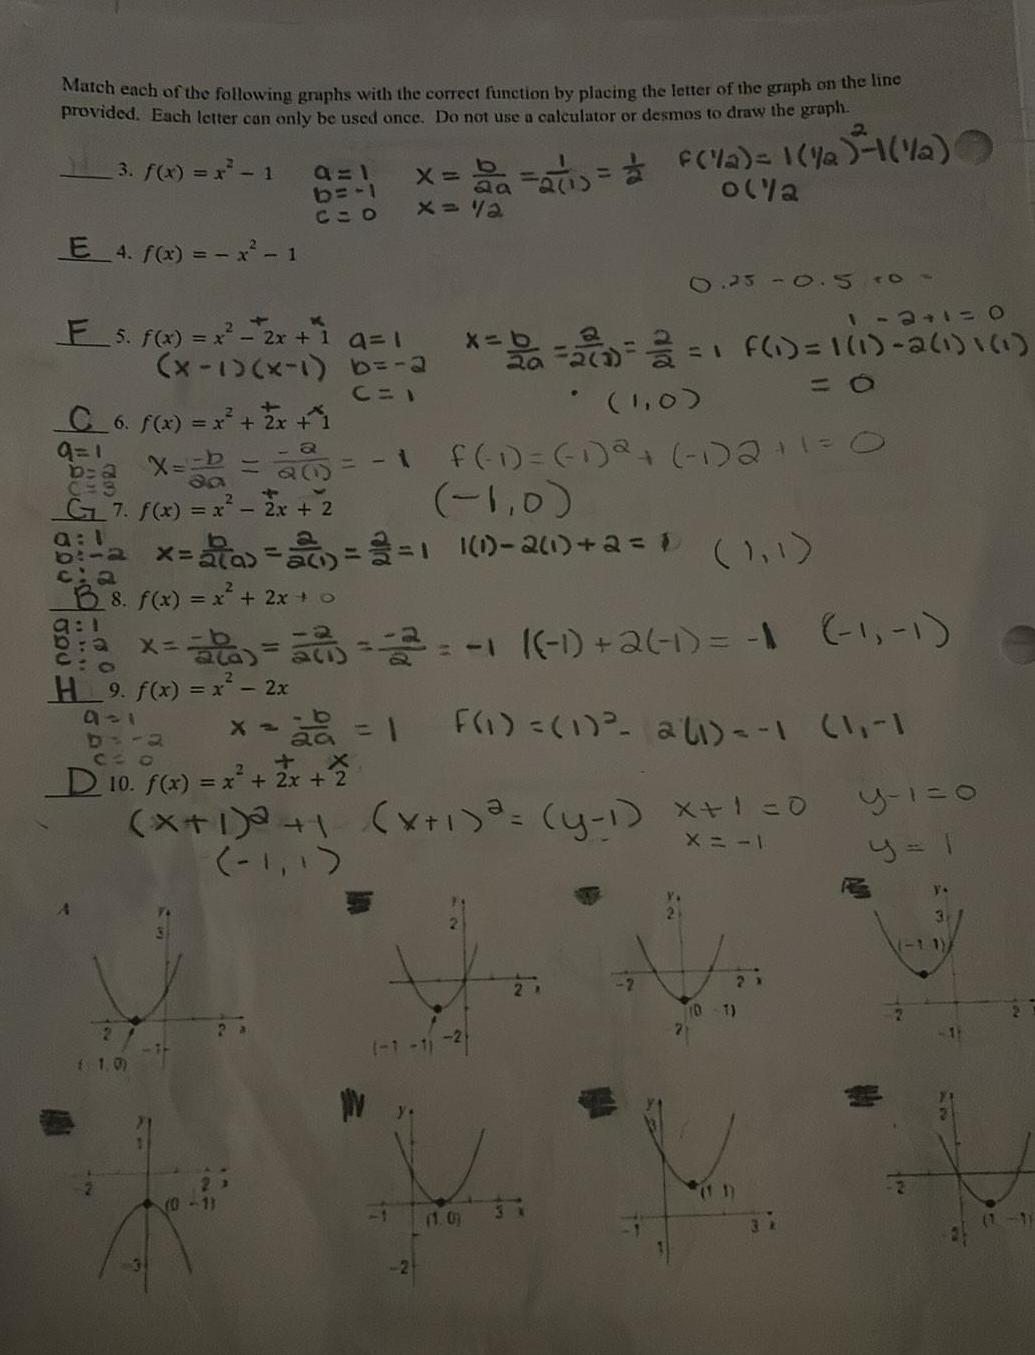 Match each of the following graphs with the correct function by placing the letter of the graph on the line
provided. Each letter can only be used once. Do not use a calculator or desmos to draw the graph.
3. f(x) = x² - 1 a = 1 x = b/2a = 1/2(1) = 1/2 f(1/2) = 1(1/2)² - 1(1/2)
b = -1 0(1/2
c = 0 x = 1/2
E 4. f(x) = - x² - 1
0.25 - 0.5 + 0 =
1 - 2 + 1 = 0
F 5. f(x) = x² - 2x + 1 a = 1 x = b/2a = 2/2(1) = 2/2 = 1 f(1) = 1(1) - 2(1) 1(1)
(x-1)(x-1) b = -2 = 0
c = 1 (1,0)
C 6. f(x) = x² + 2x + 1
a = 1 x = -b/2a = -2/2(1) = -1 f(-1) = (-1)² + (-1)2 + 1 = 0
b = 2
c = 3 (-1,0)
G 7. f(x) = x² - 2x + 2
a: 1
b: -2 x = b/2(a) = 2/2(1) = 2/2 = 1 1(1) - 2(1) + 2 = 1 (1,1)
c: 2
B 8. f(x) = x² + 2x + 0
a: 1
b: 2 x = -b/2(a) = -2/2(1) = -2/2 = -1 1(-1) + 2(-1) = -1 (-1,-1)
c: 0
H 9. f(x) = x² - 2x
a = 1 x = -b/2a = 1 f(1) = (1)² - 2(1) = -1 (1,-1
b = -2
c = 0
D 10. f(x) = x² + 2x + 2
(x+1)² + 1 (x+1)² = (y-1) x+1 = 0 y-1 = 0
(-1,1) x = -1 y = 1
A
y 3 -2 2 x -1 (-1, 0)
y 2 2 x (-1 -1) -2
y 2 -2 2 x (0 -1) 2
y 3 (-1 1) -2 2 -1
y 1 -2 2 x (0 -1) -3
y -1 (1 0) 3 x -2
y 3 (1 1) -1 3 x 1
y 2 -2 (1 -1) 2